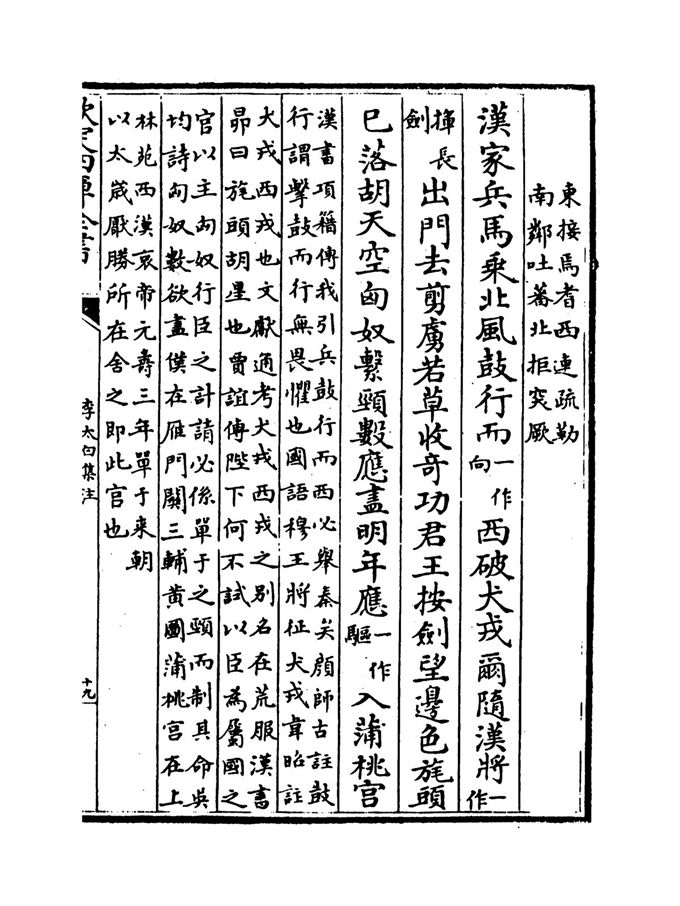 東接焉耆西連疏勒
南鄰吐蕃北拒突厥
漢家兵馬乗北風鼓行而一作向西破犬戎爾隨漢將一作
揮長劍出門去剪虜若草收奇功君王按劍望邊色旄頭
已落胡天空匈奴繫頸數應盡明年應一作驅入蒲桃宫
漢書項籍傳我引兵鼓行而西必舉秦矣顔師古註鼓
行謂擊鼓而行無畏懼也國語穆王將征犬戎韋昭註
犬戎西戎也文獻通考犬戎西戎之别名在荒服漢書
昴曰旄頭胡星也賈誼傳陛下何不試以臣為屬國之
官以主匈奴行臣之計請必係單于之頸而制其命吳
均詩匈奴數欲盡僕在雁門關三輔黄圖蒲桃宫在上
林苑西漢哀帝元壽三年單于来朝
以太歲厭勝所在舍之即此官也
欽定四庫全書
李太白集注
十九